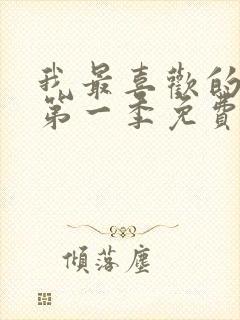 我最喜歡的
第一季免費
傾落塵